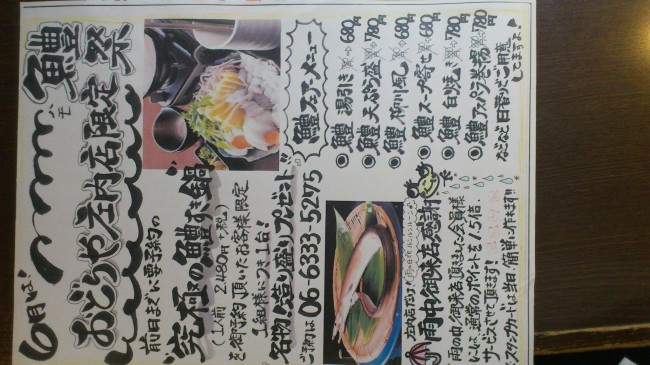 6月は!
鱧祭
おどりや庄内店限定
前日までに要予約の
"究極の鱧すき鍋"
(1人前 2,480円+税)
を御予約頂いたお客様限定
1組様につき1台!
名物!造り盛りプレゼント!!
ご予約は 06-6333-5275
鱧フェアーメニュー
鱧 湯引き 680円
鱧 天ぷら盛 780円
鱧 柳川風 680円
鱧 スープ寄せ 680円
鱧 白焼き 780円
鱧 アスパラ巻揚 780円
などなど日替りでご用意
してますよ♪
庄内店だけ!
雨中御来店感謝
雨の中、御来店頂きました会員様
には、通常のポイントを1.5倍
サービスさせて頂きます!!
※スタンプカードは当日、簡単に作れます!!